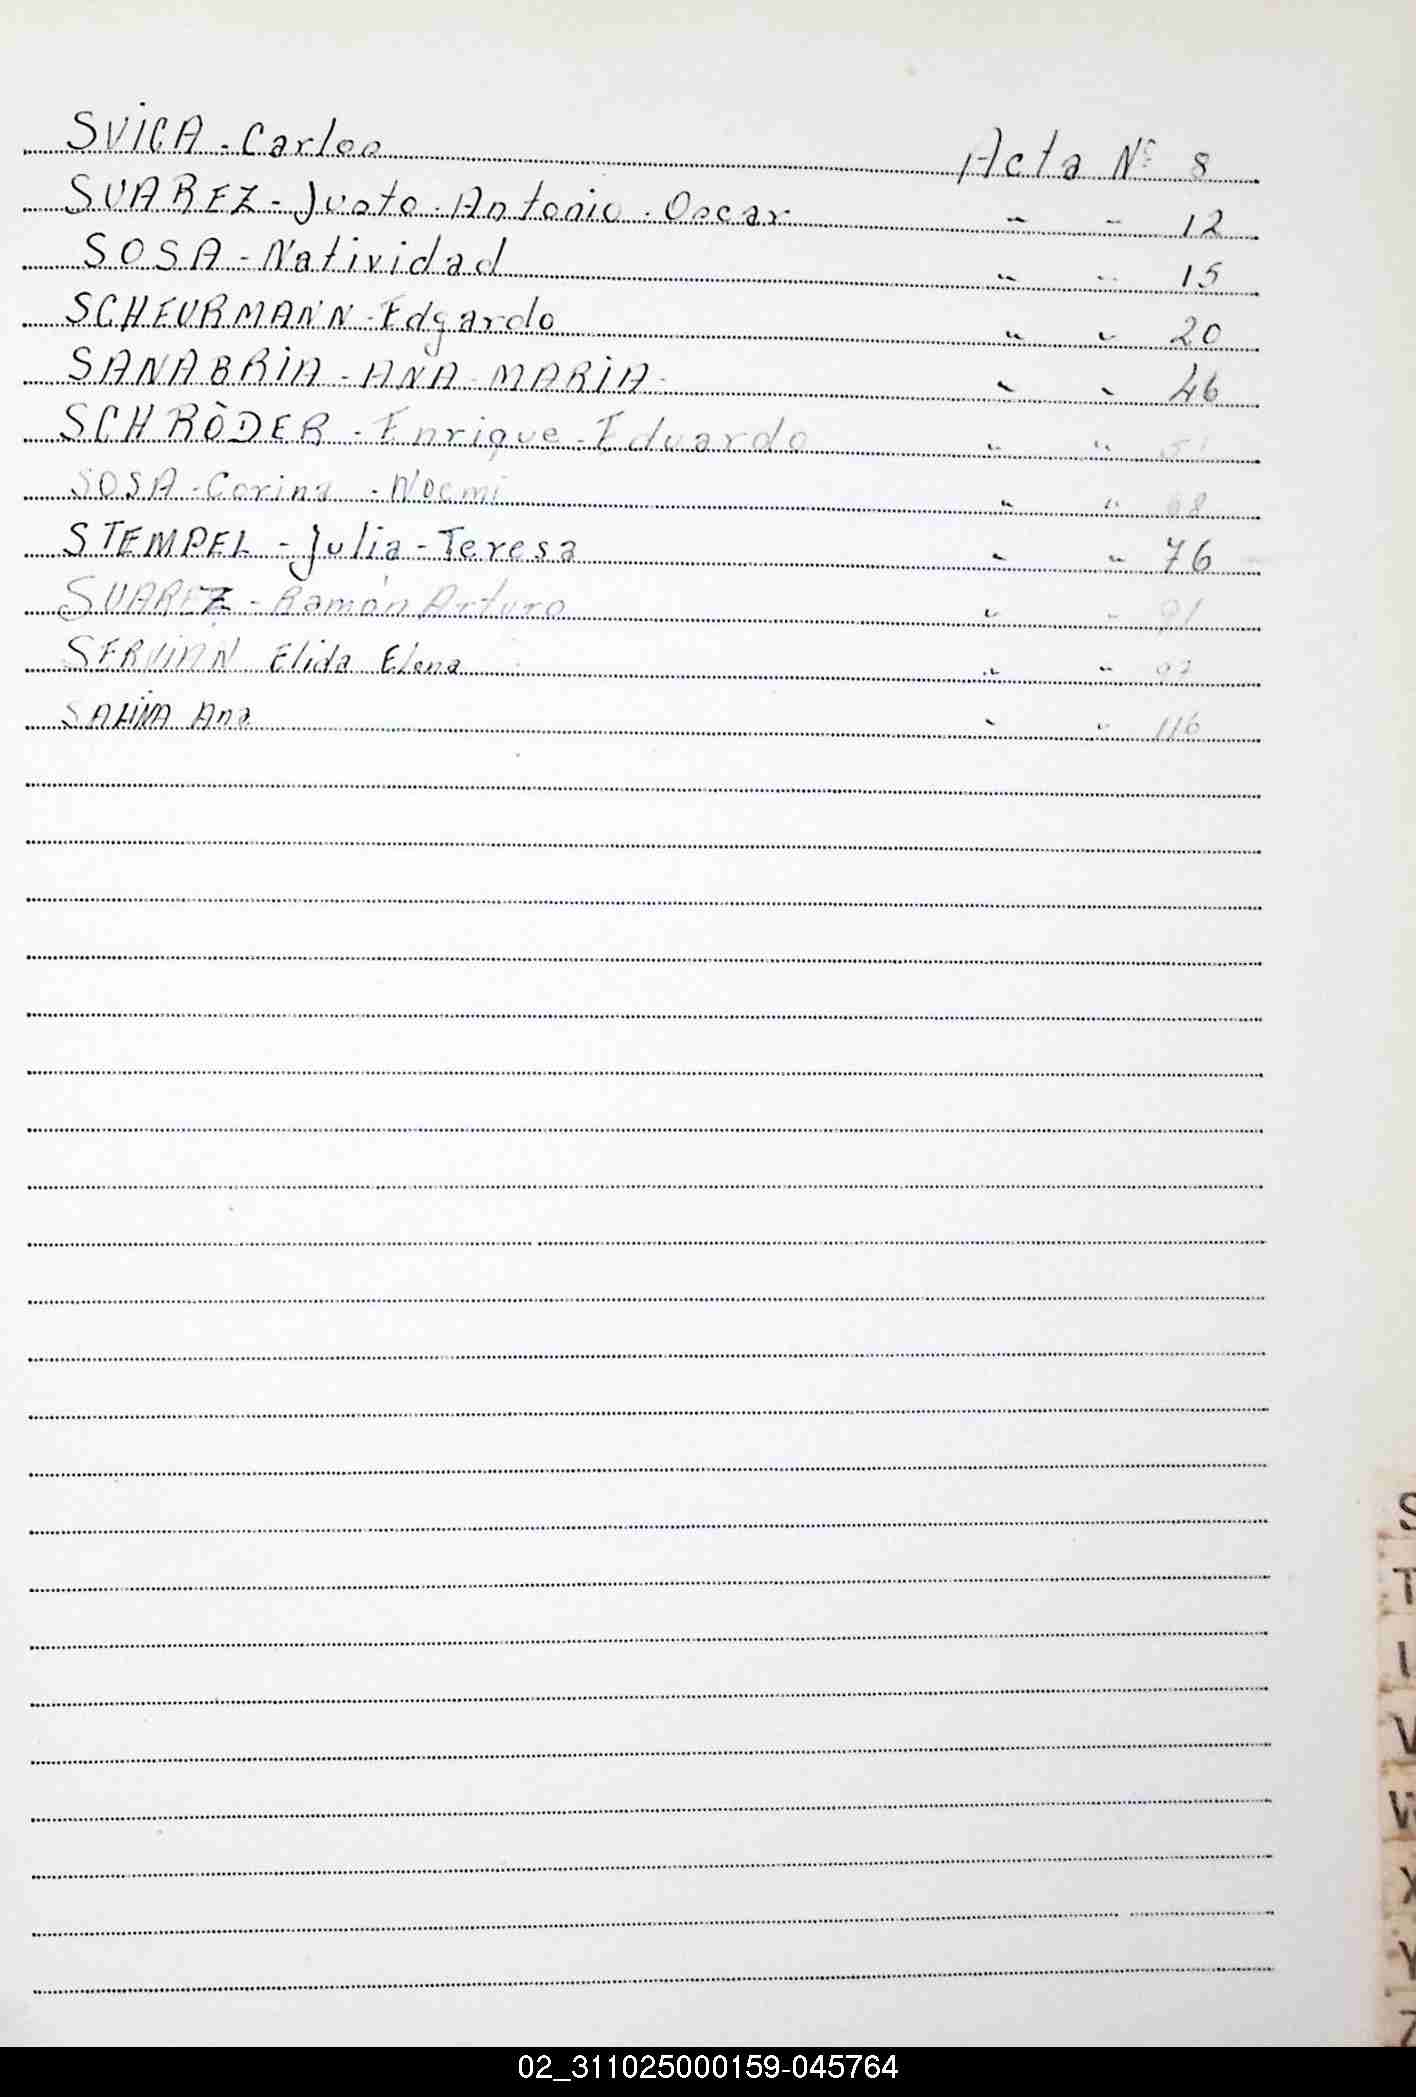 SVICA - Carlos Acta Nº 8
SUAREZ - Justo - Antonio - Oscar " " 12
SOSA - Natividad " " 15
SCHEURMANN - Edgardo " " 20
SANABRIA - ANA - MARIA - " " 46
SCHRÒDER - Enrique - Eduardo " "
SOSA - Corina - Noemi " " 68
STEMPEL - Julia - Teresa " " 76
SUAREZ - Ramón Arturo " " 91
SERVIAN Elida Elena " " 97
SALINA Ana " " 116
S
T
U
V
W
X
Y
Z
02_311025000159-045764